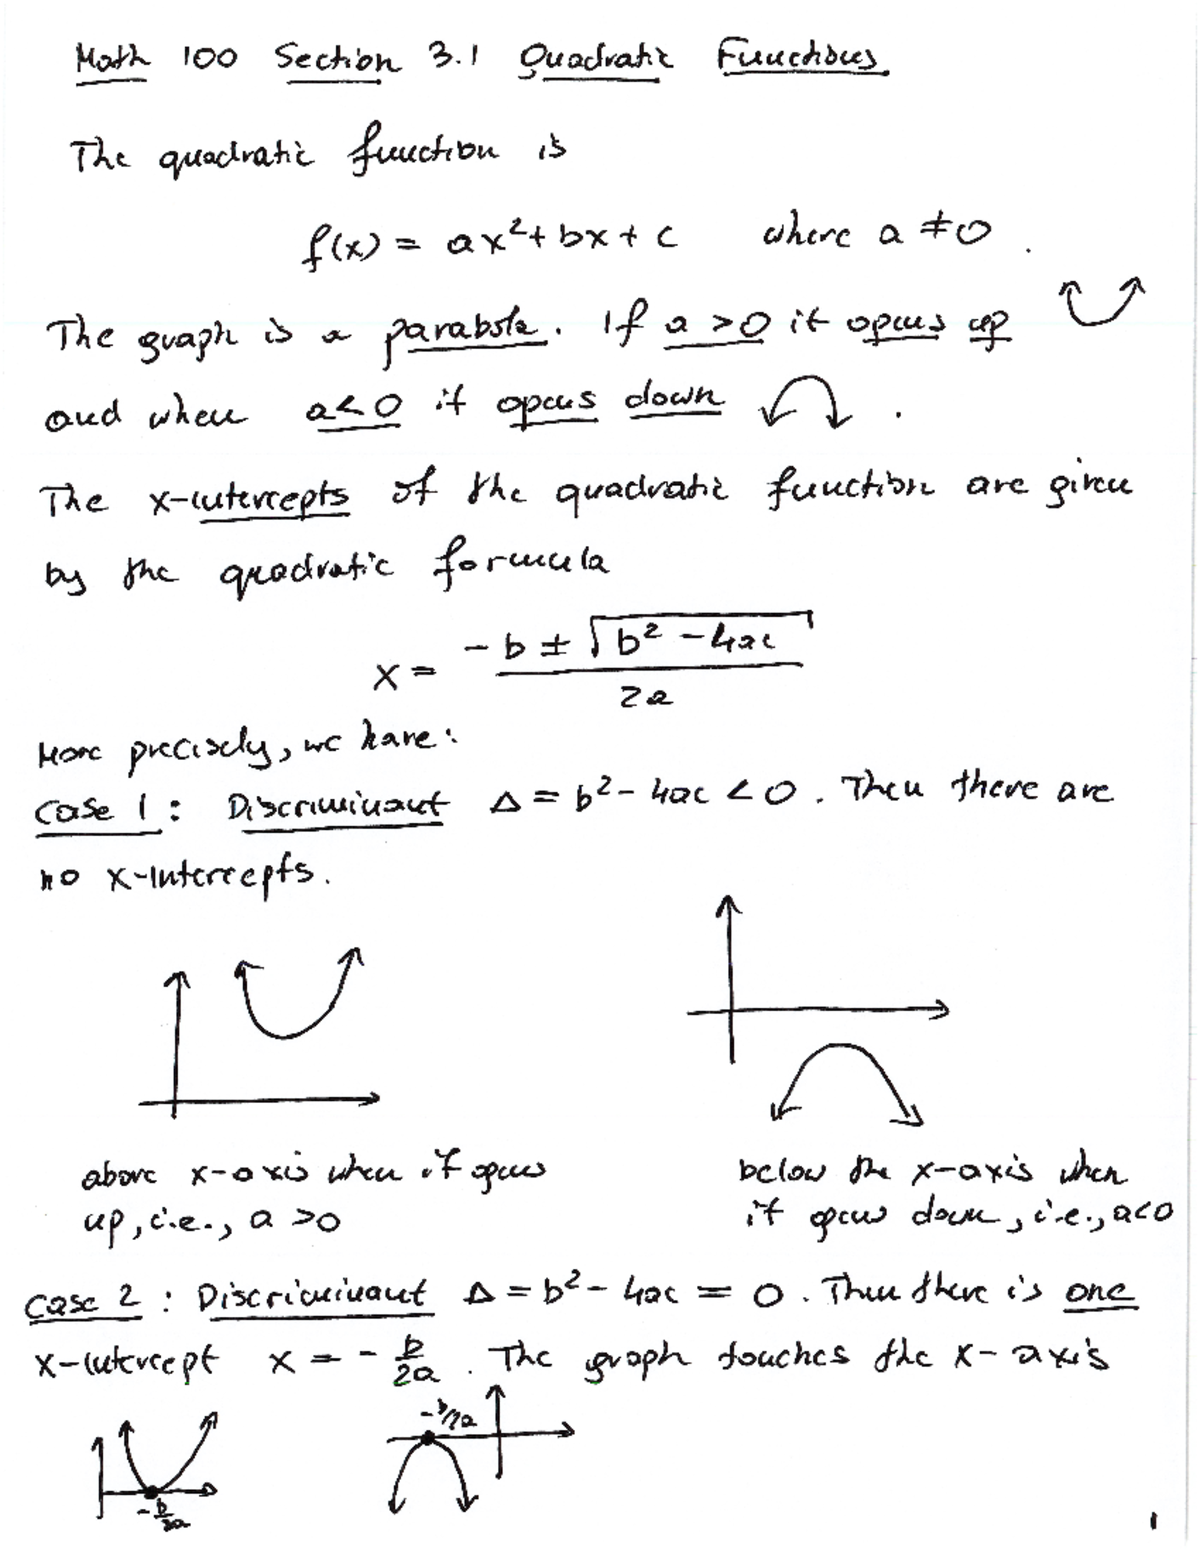 Math 100 Section 3.1 Quadratic Functions
The quadratic function is
f(x) = ax²+ bx + c where a ≠ 0.
The graph is a parabola. If a > 0 it opens up
and when a < 0 it opens down.
The x-intercepts of the quadratic function are given
by the quadratic formula
x = (-b ± √(b² - 4ac)) / 2a
More precisely, we have:
Case 1: Discriminant Δ = b² - 4ac < 0. Then there are
no x-intercepts.
above x-axis when it opens
up, i.e., a > 0
below the x-axis when
it opens down, i.e., a<0
Case 2: Discriminant Δ = b² - 4ac = 0. Then there is one
x-intercept x = - b/2a. The graph touches the x-axis
-b/2a
-b/2a
1